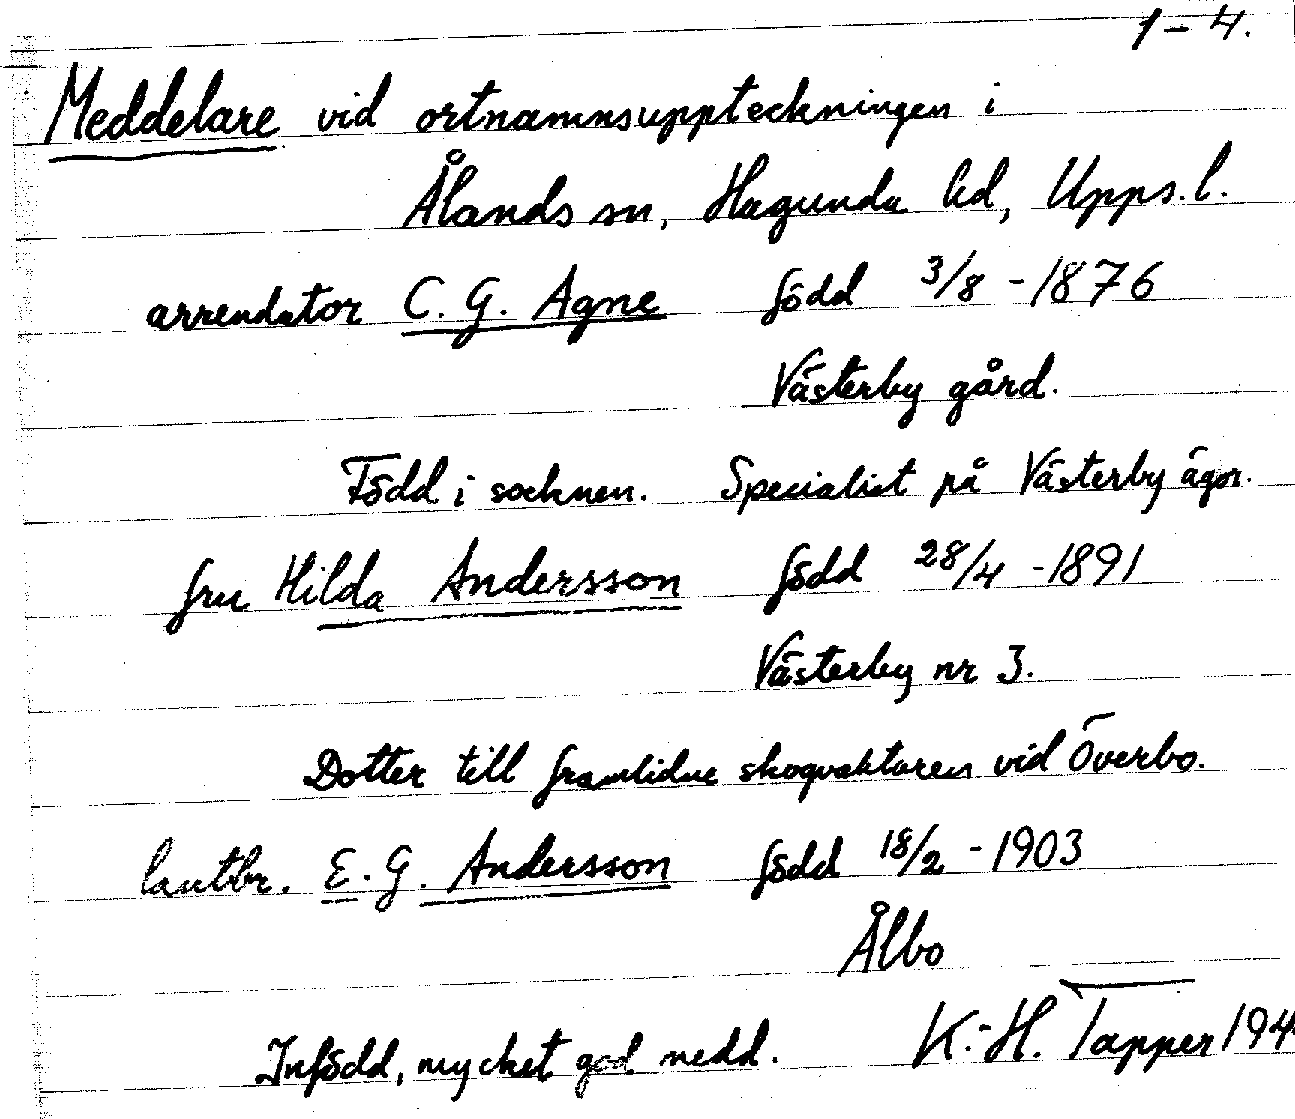 1-4.
Meddelare vid ortnamnsuppteckningen i
Ålands sn, Hagunda hd, Upps. l.
arrendator C. G. Agne född 3/8 -1876
Västerby gård.
Född i socknen. Specialist på Västerby ägor.
fru Hilda Andersson född 28/4 -1891
Västerby nr 3.
Dotter till framlidne skogvaktaren vid Överbo.
lantbr. E. G. Andersson född 18/2 -1903
Ålbo
Infödd, mycket god medd. K.-H. Tapper 194